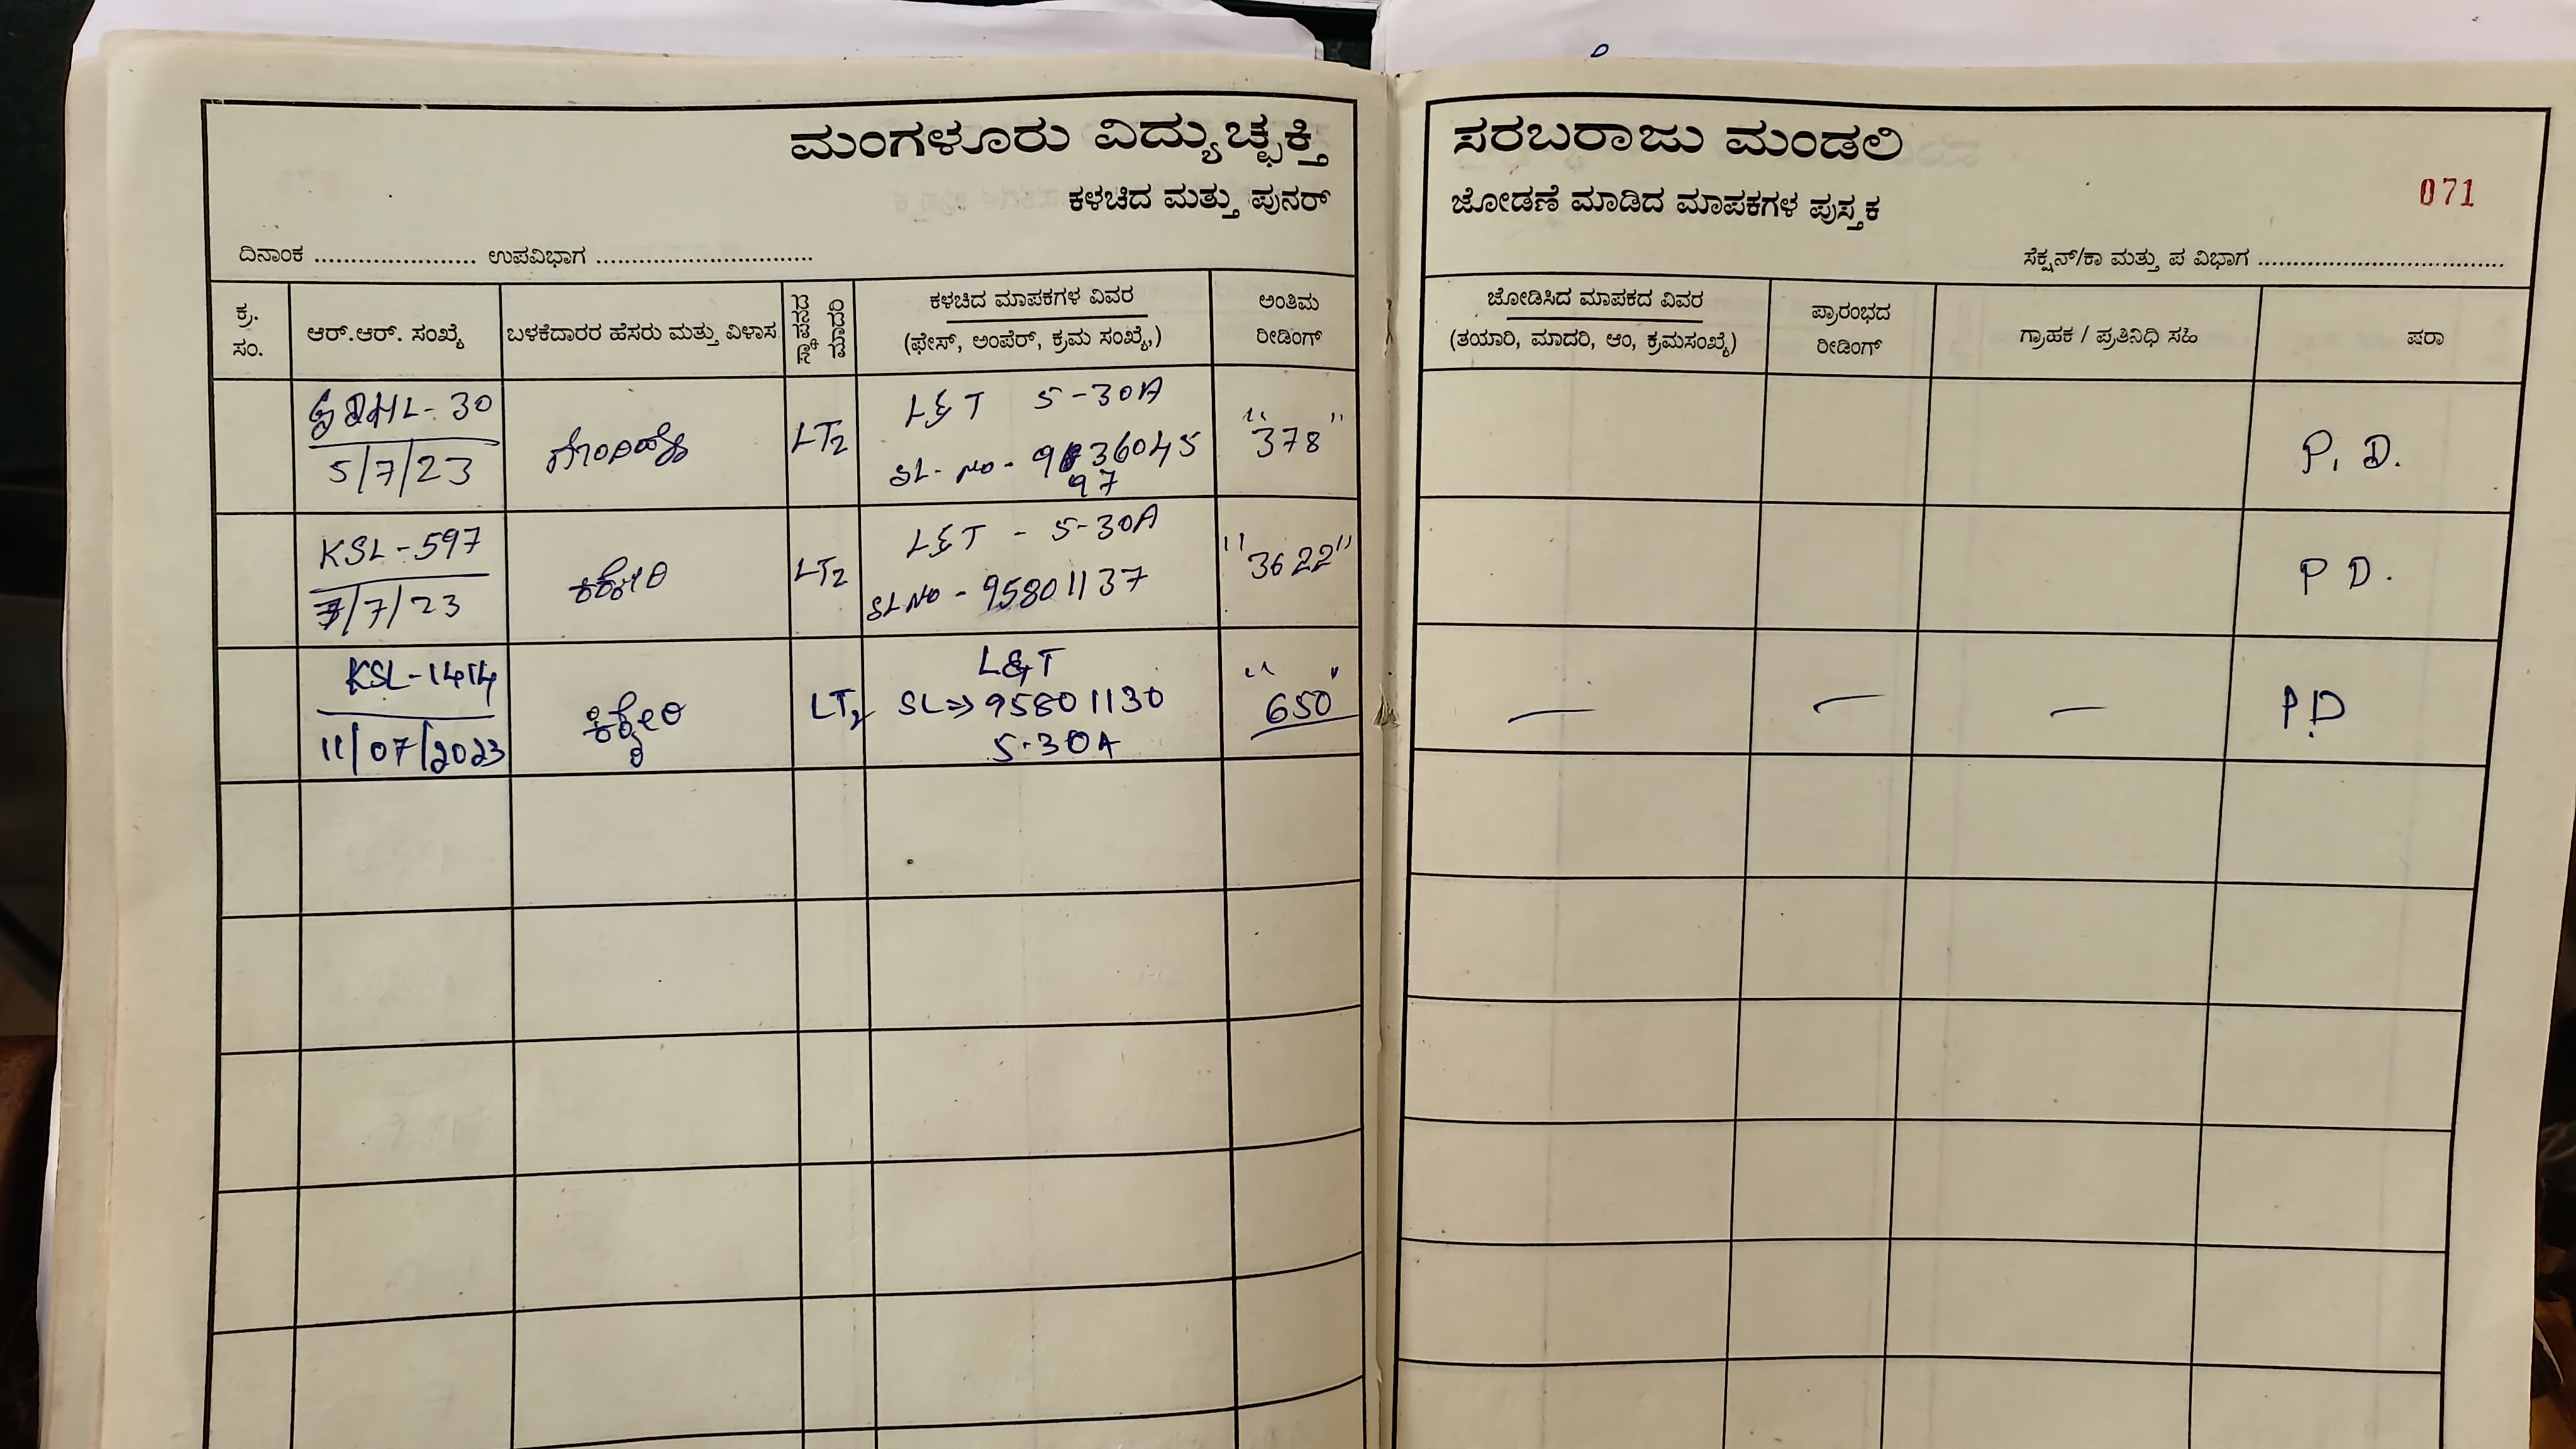 ಮಂಗಳೂರು ವಿದ್ಯುಚ್ಛಕ್ತಿ ಸರಬರಾಜು ಮಂಡಲಿ
ಕಳಚಿದ ಮತ್ತು ಪುನರ್ ಜೋಡಣೆ ಮಾಡಿದ ಮಾಪಕಗಳ ಪುಸ್ತಕ
071
ದಿನಾಂಕ ...................... ಉಪವಿಭಾಗ ..............................
ಸೆಕ್ಷನ್/ಕಾ ಮತ್ತು ಪ ವಿಭಾಗ ..................................
ಕ್ರ.
ಸಂ.
ಆರ್.ಆರ್. ಸಂಖ್ಯೆ
ಬಳಕೆದಾರರ ಹೆಸರು ಮತ್ತು ವಿಳಾಸ
ಸ್ಥಾಪನದ
ಮಾದರಿ
ಕಳಚಿದ ಮಾಪಕಗಳ ವಿವರ
(ಫೇಸ್, ಅಂಪೆರ್, ಕ್ರಮ ಸಂಖ್ಯೆ,)
ಅಂತಿಮ
ರೀಡಿಂಗ್
ಜೋಡಿಸಿದ ಮಾಪಕದ ವಿವರ
(ತಯಾರಿ, ಮಾದರಿ, ಆಂ, ಕ್ರಮಸಂಖ್ಯೆ)
ಪ್ರಾರಂಭದ
ರೀಡಿಂಗ್
ಗ್ರಾಹಕ / ಪ್ರತಿನಿಧಿ ಸಹಿ
ಷರಾ
HL-30
5/7/23
LT2
L&T 5-30A
SL-No-9 36045
97
"378"
P.D.
KSL-597
7/7/23
LT2
L&T - 5-30A
SL NO - 95801137
"3622"
P D.
KSL-1414
11/07/2023
ಕಿಕ್ಕೇರಿ
LT2
L&T
SL⇒95801130
5-30A
"650"
— — —
P.D